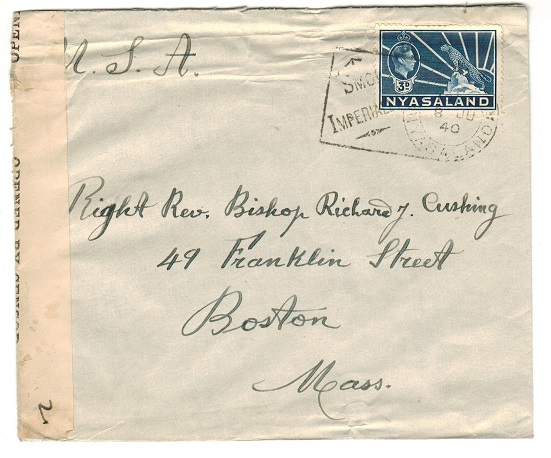 U. S. A.
3d
NYASALAND
SMO
IMPERI
8 JU
40
NYASALAND
Right Rev. Bishop Richard J. Cushing
49 Franklin Street
Boston
Mass.
OPEN
OPENED BY CENSOR
2